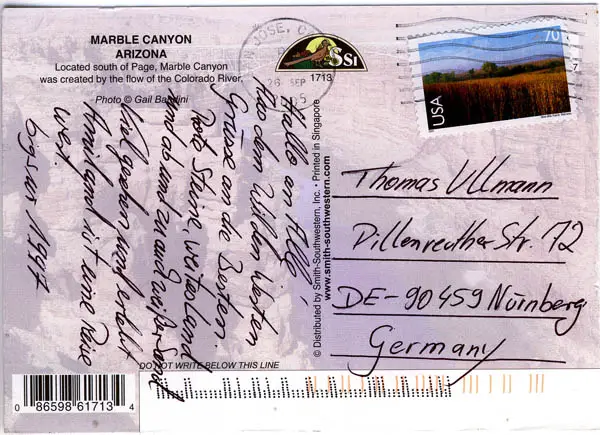 MARBLE CANYON
ARIZONA
Located south of Page, Marble Canyon
was created by the flow of the Colorado River.
Photo © Gail Bandini
SSI
1713
JOSE, C
26 SEP
70
USA
Hallo an Alle,
Aus dem Wilden Westen
Grüsse an die Besten.
Rote Steine, weites Land
und ab und zu auch weißer Sand
Viel gesehen viel erlebt
Amiland ist eine Reise
wert.
1947
© Distributed by Smith-Southwestern, Inc. • Printed in Singapore
www.smith-southwestern.com
Thomas Ullmann
Dillenreuther Str. 72
DE-90459 Nürnberg
Germany
DO NOT WRITE BELOW THIS LINE
0 86598 61713 4